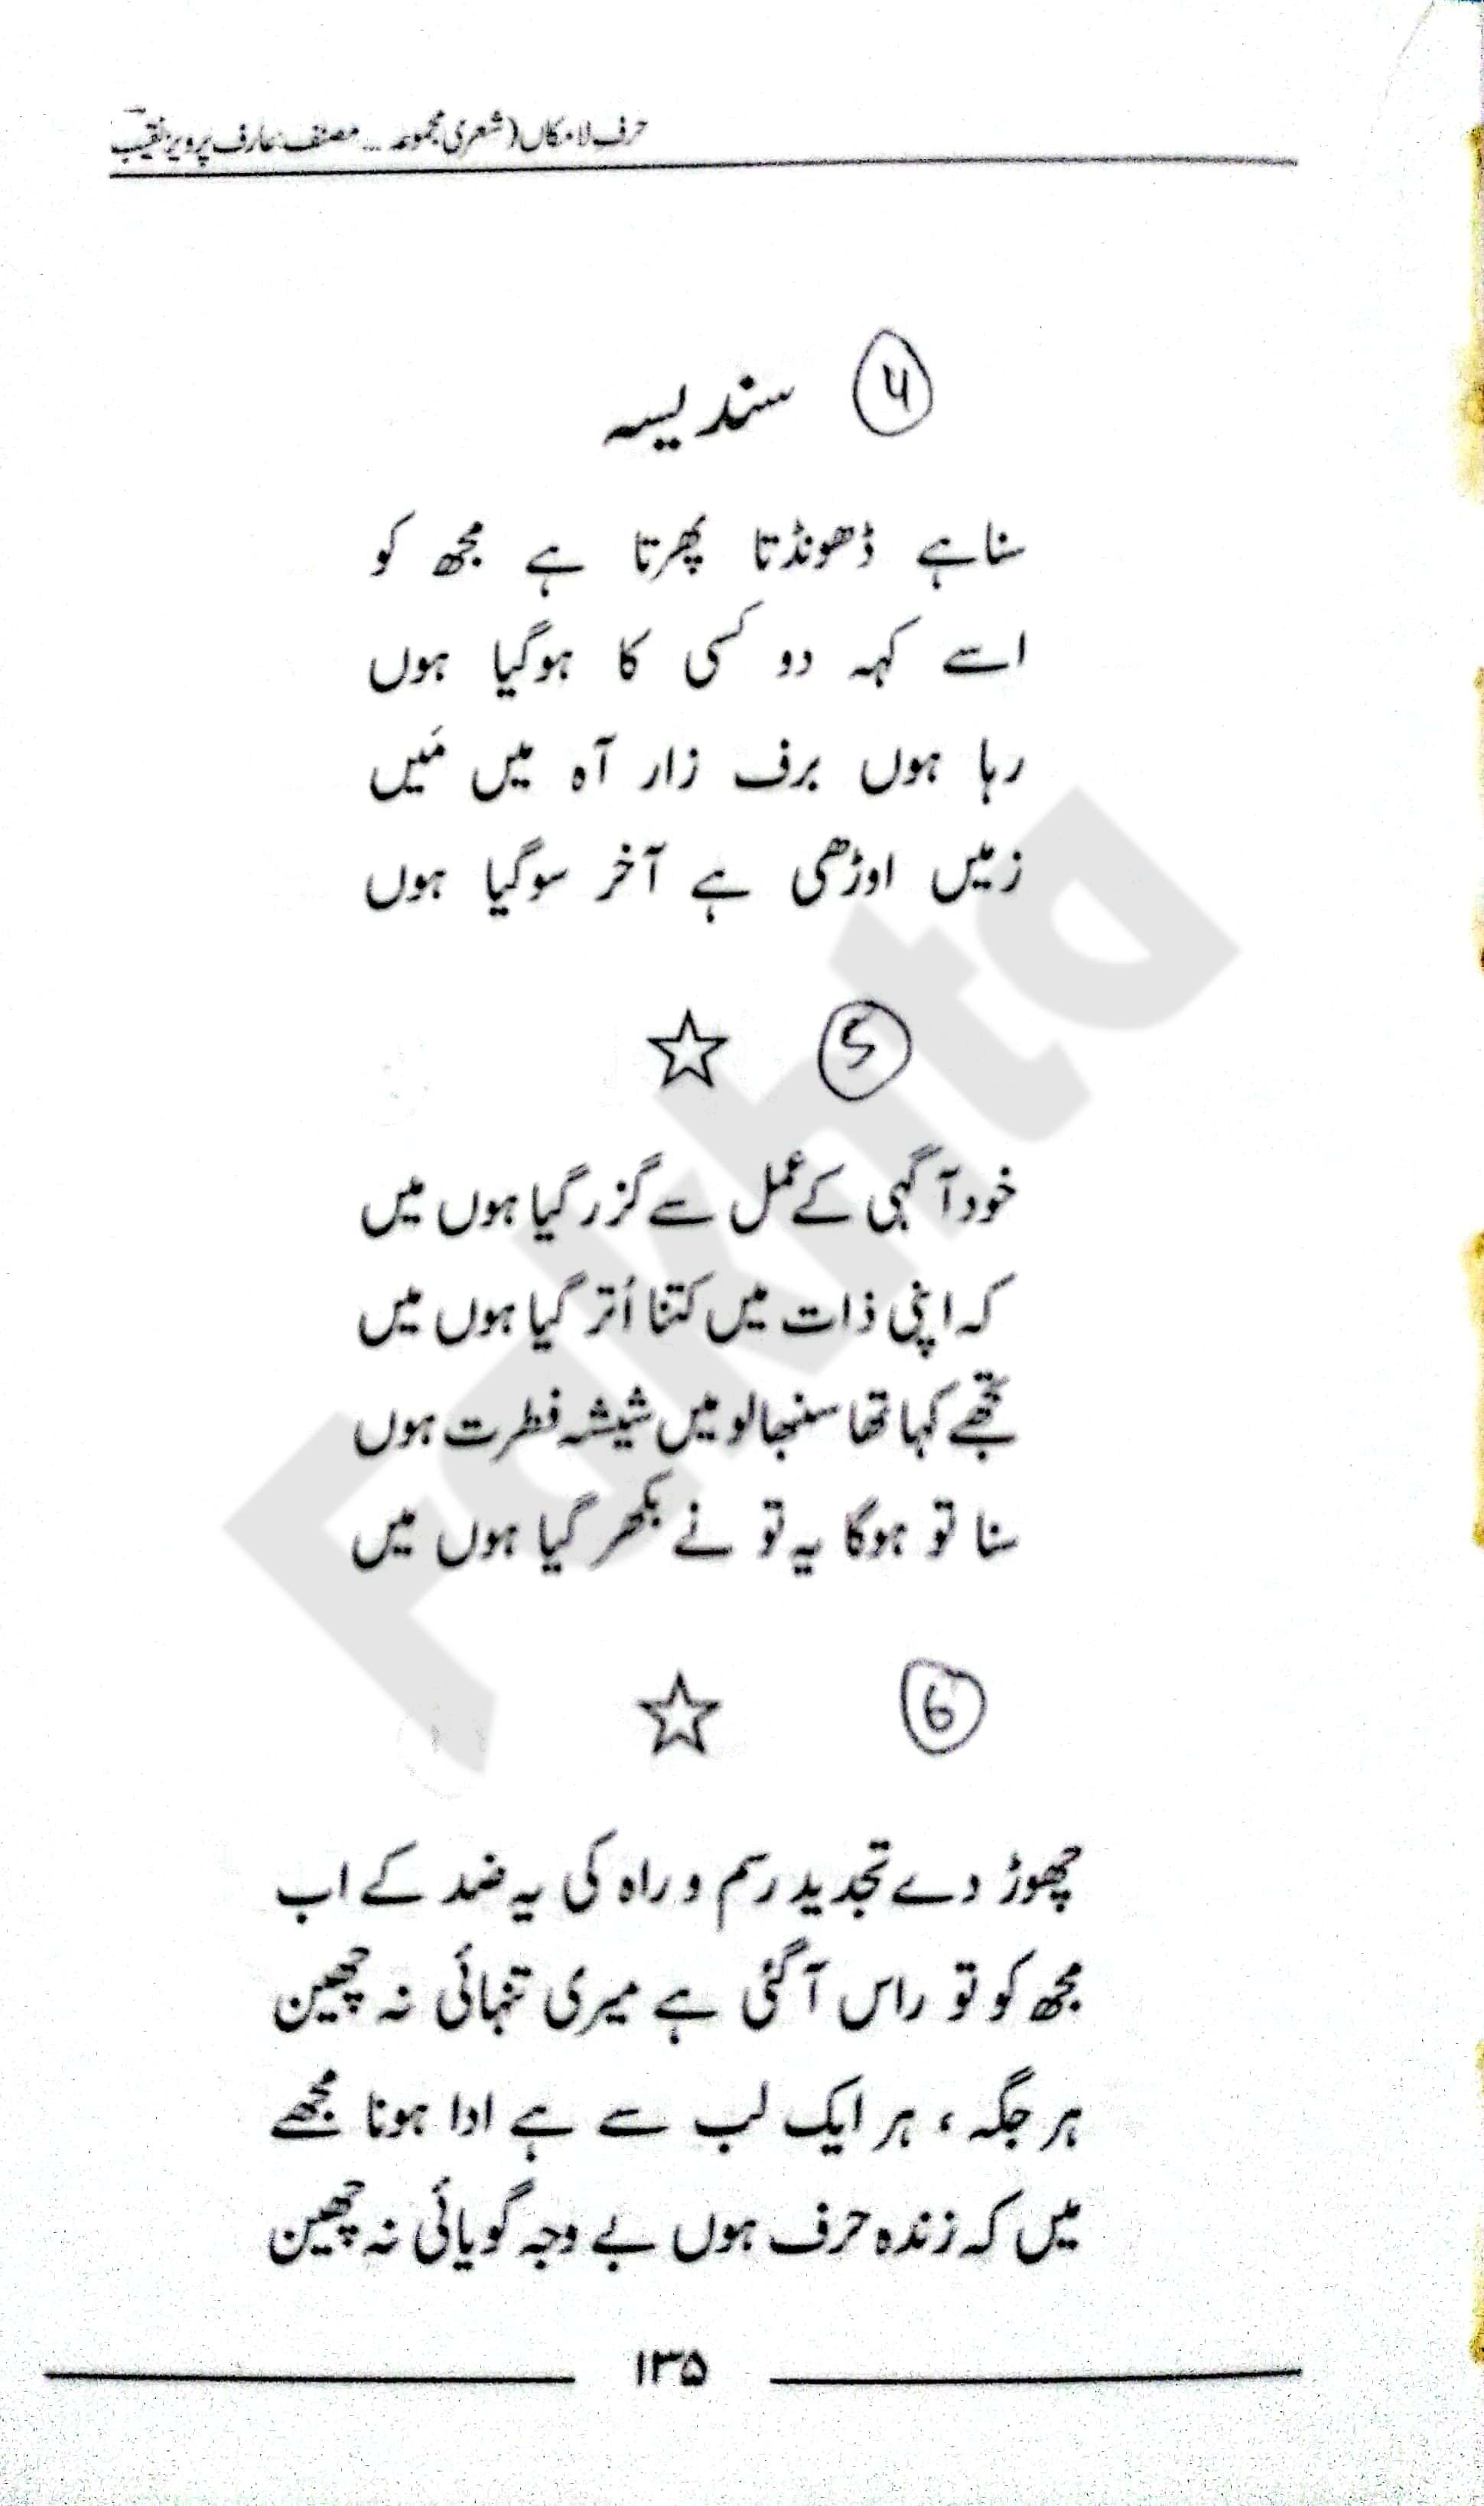 حرف لا مکاں (شعری مجموعہ ... مصنف عارف پرویز نقیب
4 سندیسہ
سنا ہے ڈھونڈتا پھرتا ہے مجھ کو
اسے کہہ دو کسی کا ہوگیا ہوں
رہا ہوں برف زار آہ میں مَیں
زمیں اوڑھی ہے آخر سوگیا ہوں
☆ 5
خود آگہی کے عمل سے گزر گیا ہوں میں
کہ اپنی ذات میں کتنا اُتر گیا ہوں میں
تجھے کہا تھا سنبھالو میں شیشہ فطرت ہوں
سنا تو ہوگا یہ تو نے بکھر گیا ہوں میں
☆ 6
چھوڑ دے تجدید رسم و راہ کی یہ ضد کے اب
مجھ کو تو راس آگئی ہے میری تنہائی نہ چھین
ہر جگہ ، ہر ایک لب سے ہے ادا ہونا مجھے
میں کہ زندہ حرف ہوں بے وجہ گویائی نہ چھین
۱۳۵
Fakhta